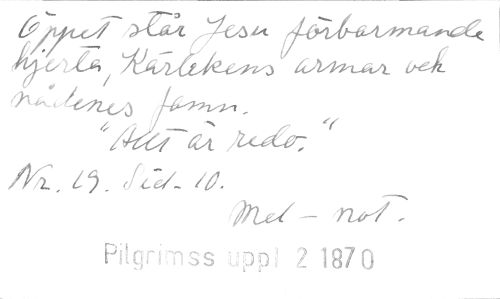 Öppet står Jesu förbarmande
hjerta, Kärlekens armar och
nådenes famn.
"Allt är redo."
Nr. 19. Sid- 10.
Mel - not.
Pilgrimss uppl 2 1870